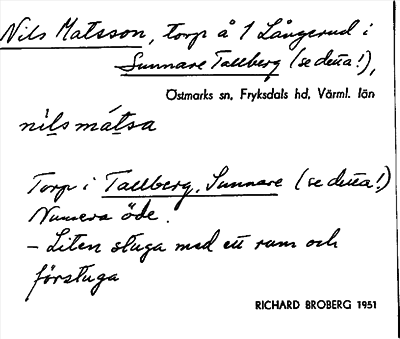 Nils Matsson, torp å 1 Långerud i
Sunnare Tallberg (se detta!),
Östmarks sn, Fryksdals hd, Värml. län
nìl̠s mát̠sa
Torp i Tallberg, Sunnare (se detta!)
Numera öde.
- Liten stuga med ett rum och
förstuga
RICHARD BROBERG 1951